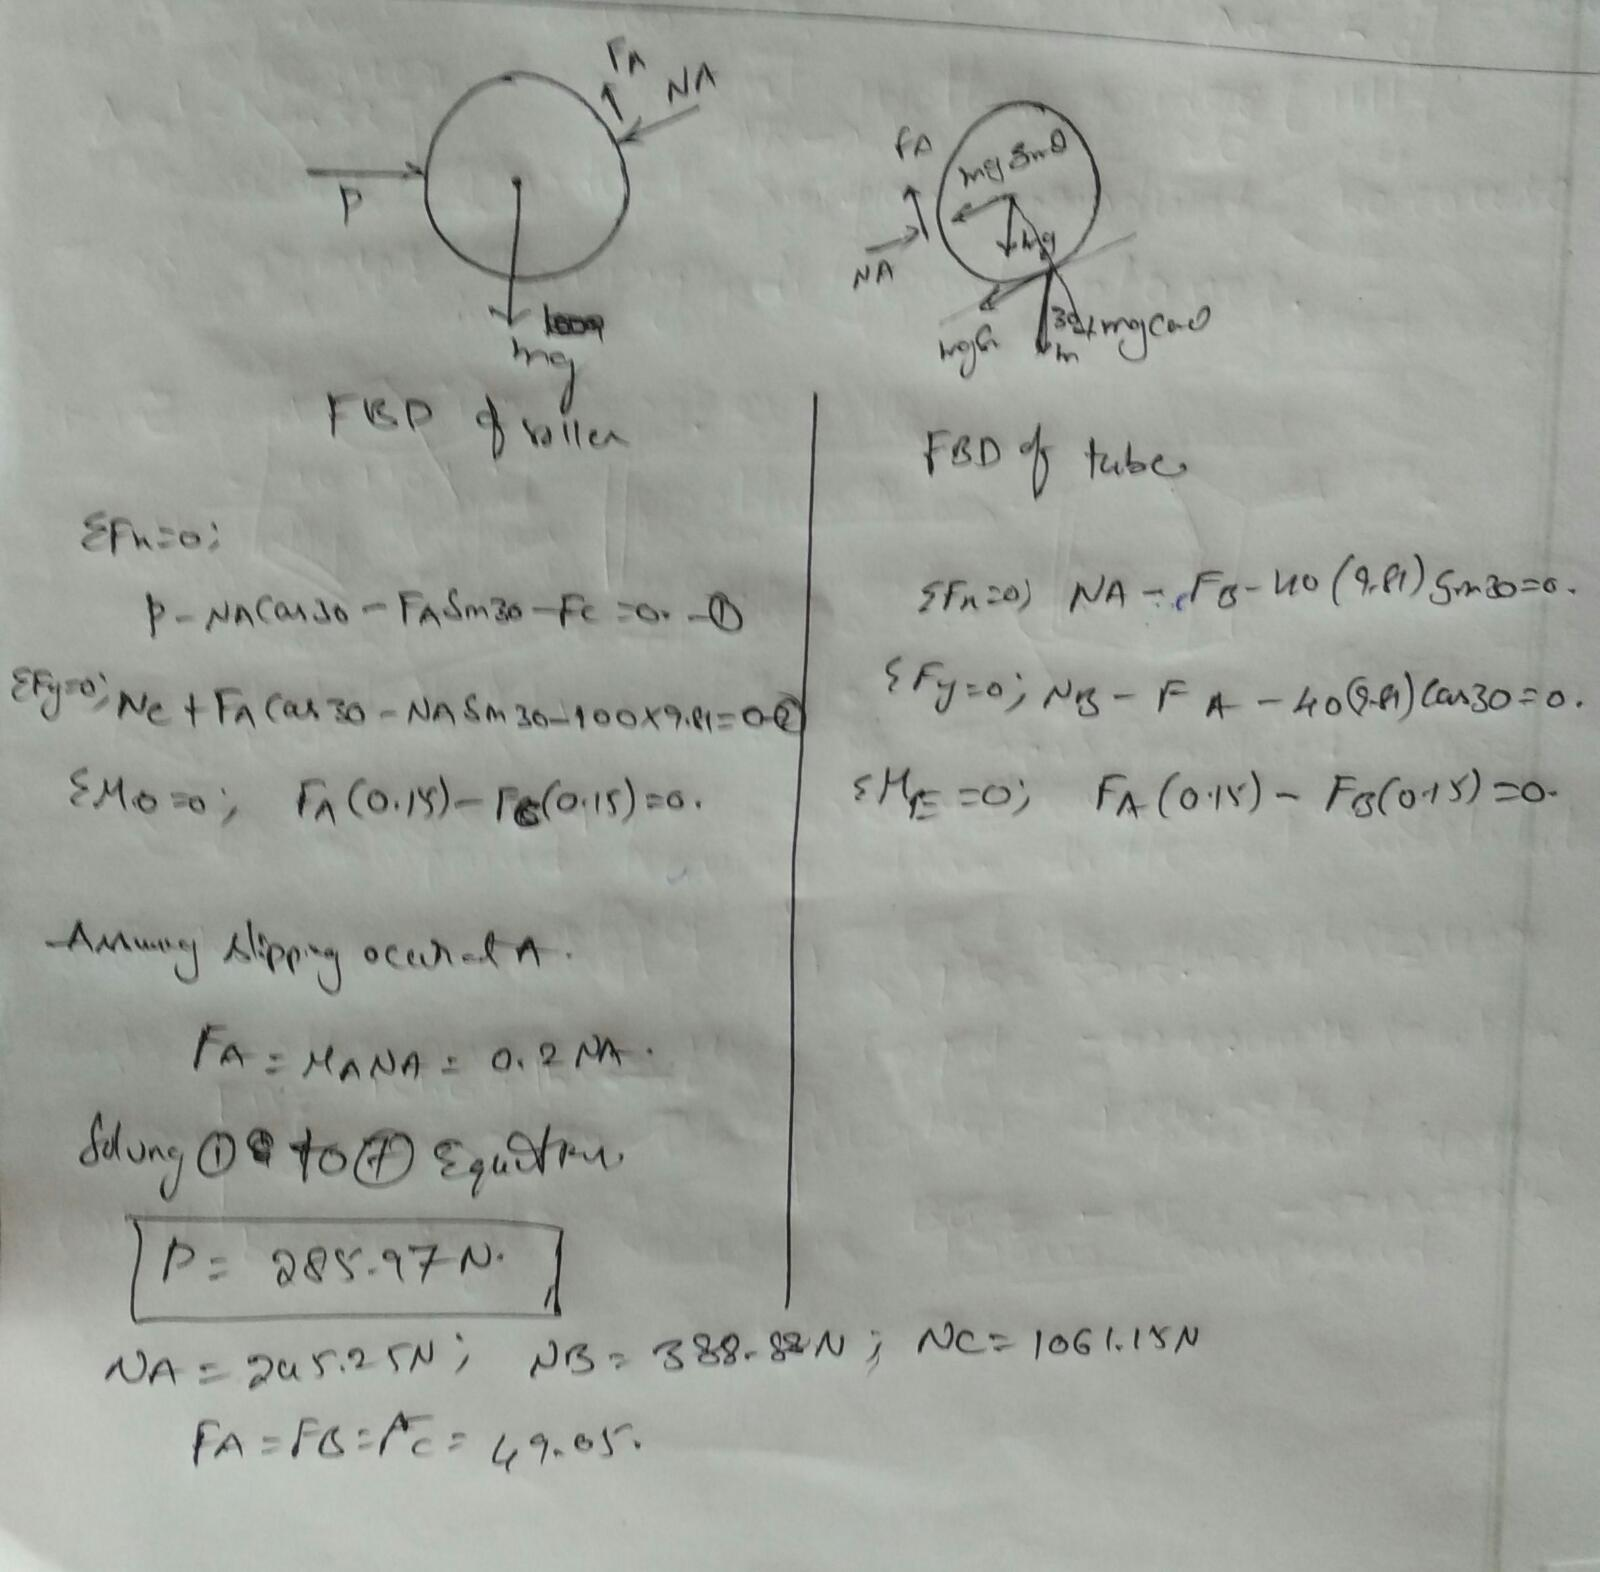 FA
NA
P
mg
FBD of roller
FA
mg Sinθ
NA
mg
30
mg cosθ
FBD of tube
ΣFx=0;
P - NA Cos30 - FA Sin30 - Fc = 0. -①
ΣFy=0; Nc + FA Cos 30 - NA Sin 30 - 100×9.81 = 0 -②
ΣMo=0; FA (0.15) - Fc (0.15) = 0.
ΣFx=0; NA - FB - 40 (9.81) Sin30=0.
ΣFy=0; NB - FA - 40(9.81) Cos30=0.
ΣME=0; FA (0.15) - FB(0.15)=0.
Assuming slipping occur at A.
FA = μANA = 0.2 NA.
Solving ① to ⑦ Equation
P = 285.97 N.
NA = 245.25N; NB = 388.88N; NC = 1061.15N
FA = FB = Fc = 49.05.